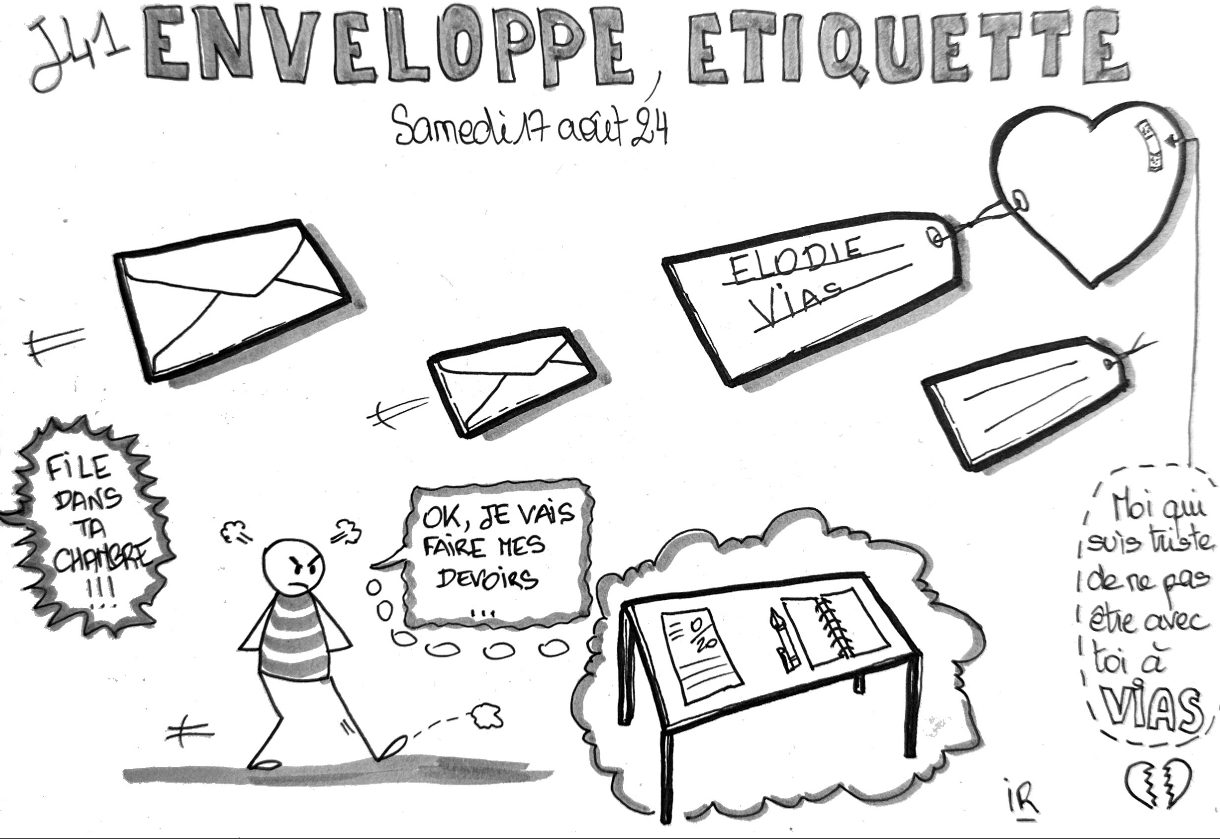 J41 ENVELOPPE, ETIQUETTE
Samedi 17 août 24
ELODIE
VIAS
FiLE
DANS
TA
CHAMBRE
!!!
OK, JE VAiS
FAIRE MES
DEVOIRS
...
0
20
Moi qui
suis triste
de ne pas
être avec
toi à
ViAS
iR